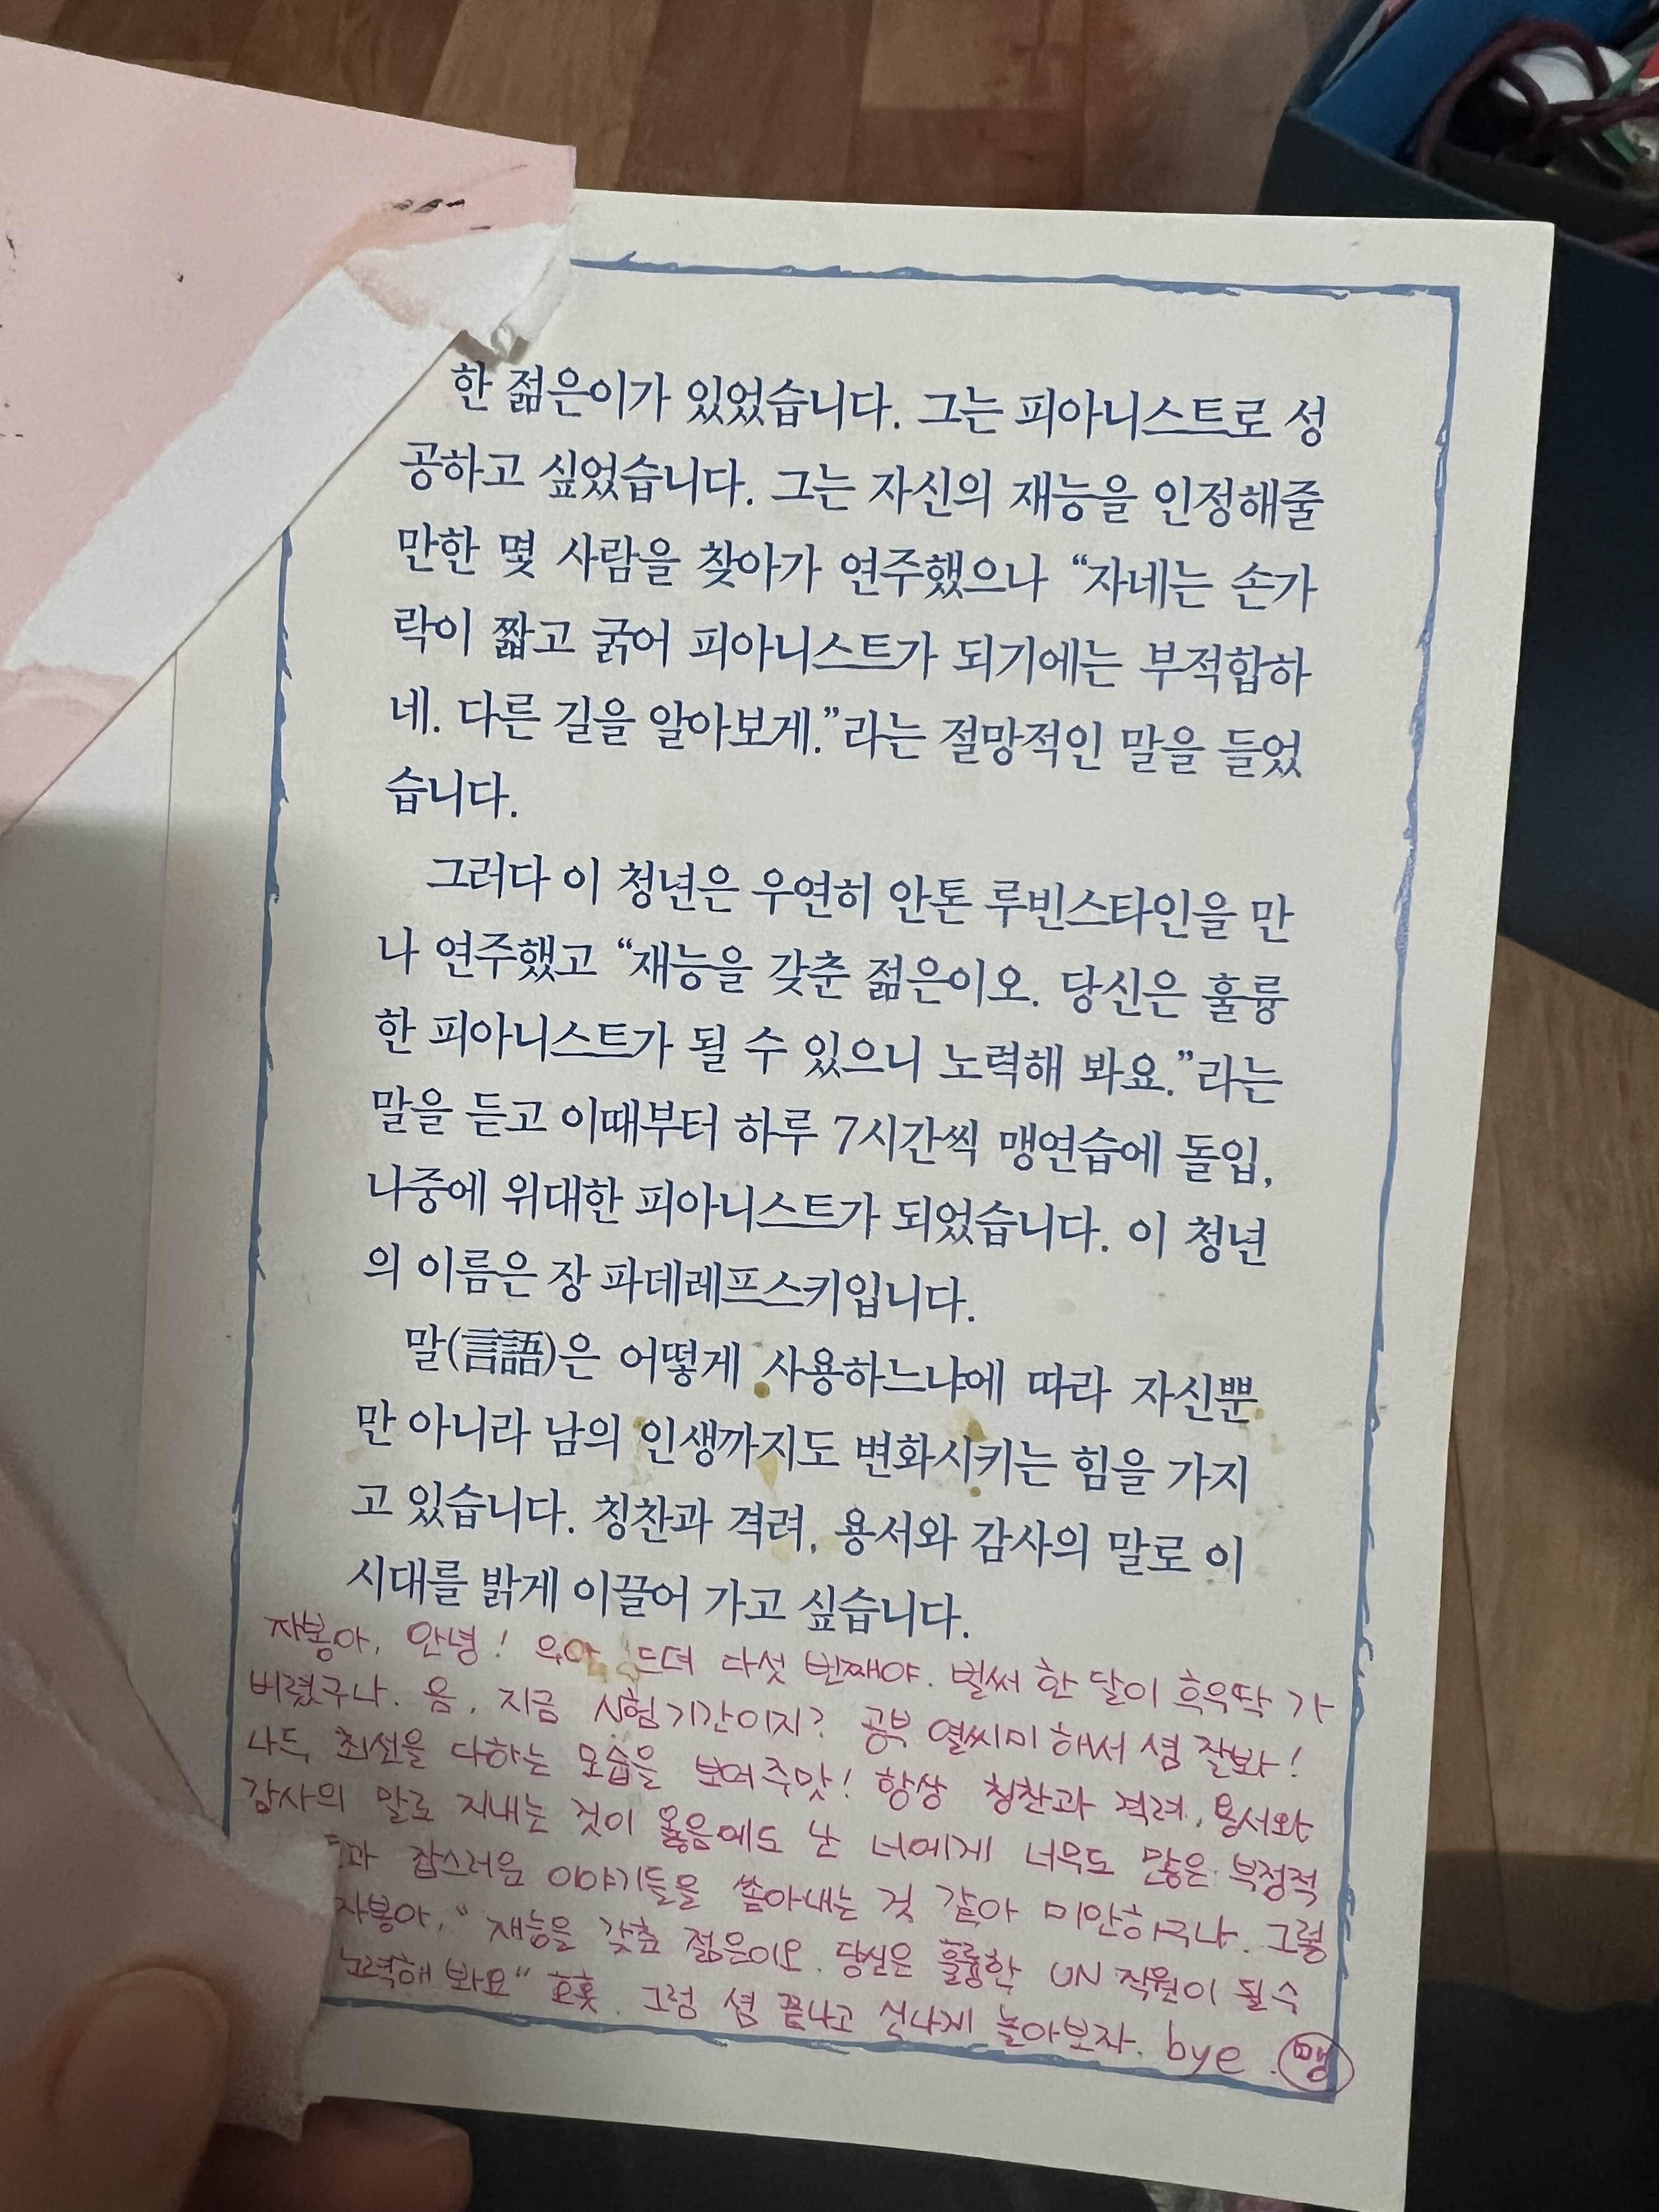 한 젊은이가 있었습니다. 그는 피아니스트로 성
공하고 싶었습니다. 그는 자신의 재능을 인정해줄
만한 몇 사람을 찾아가 연주했으나 “자네는 손가
락이 짧고 굵어 피아니스트가 되기에는 부적합하
네. 다른 길을 알아보게.”라는 절망적인 말을 들었
습니다.
그러다 이 청년은 우연히 안톤 루빈스타인을 만
나 연주했고 “재능을 갖춘 젊은이오. 당신은 훌륭
한 피아니스트가 될 수 있으니 노력해 봐요.”라는
말을 듣고 이때부터 하루 7시간씩 맹연습에 돌입,
나중에 위대한 피아니스트가 되었습니다. 이 청년
의 이름은 장 파데레프스키입니다.
말(言語)은 어떻게 사용하느냐에 따라 자신뿐
만 아니라 남의 인생까지도 변화시키는 힘을 가지
고 있습니다. 칭찬과 격려, 용서와 감사의 말로 이
시대를 밝게 이끌어 가고 싶습니다.
자봉아, 안녕! 우아 드뎌 다섯 번째야. 벌써 한 달이 흐우딱 가
버렸구나. 음, 지금 시험기간이지? 공부 열씨미 해서 셤 잘봐!
나두 최선을 다하는 모습을 보여주맛! 항상 칭찬과 격려, 용서와
감사의 말로 지내는 것이 옳음에도 난 너에게 너무도 많은 부정적
과 잡스러운 이야기들을 쏟아내는 것 같아 미안하구나. 그럴
자봉아, “재능을 갖춘 젊은이오. 당신은 훌륭한 UN 직원이 될 수
노력해 봐요” 호홋. 그럼 셤 끝나고 신나게 놀아보자. bye. 맹